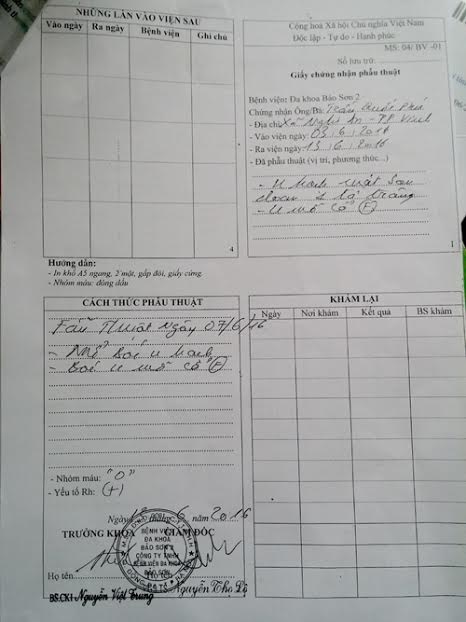 NHỮNG LẦN VÀO VIỆN SAU
Vào ngày Ra ngày Bệnh viện Ghi chú
4
Cộng hoà Xã hội Chủ nghĩa Việt Nam
Độc lập - Tự do - Hạnh phúc
MS: 04/ BV -01
Số lưu trữ:
Giấy chứng nhận phẫu thuật
Bệnh viện: Đa khoa Bảo Sơn 2
Chứng nhận Ông/Bà: Trần Quốc
- Địa chỉ: Xã Nghi Ân - TP Vinh
- Vào viện ngày: 03/6/2016
- Ra viện ngày: 13/6/2016
- Đã phẫu thuật (vị trí, phương thức...)
- U
- U mỡ cổ (P)
1
Hướng dẫn:
- In khổ A5 ngang, 2 mặt, gấp đôi, giấy cứng.
- Nhóm máu: đóng dấu
CÁCH THỨC PHẪU THUẬT
Fẫu Thuật Ngày 07/6/16
- Mổ bóc u
- Bóc u mỡ cổ (P)
- Nhóm máu: "O"
- Yếu tố Rh: (+)
Ngày tháng 6 năm 2016
TRƯỞNG KHOA GIÁM ĐỐC
BỆNH VIỆN
ĐA KHOA
BẢO SƠN 2
CÔNG TY TNHH
BỆNH VIỆN ĐA KHOA
BẢO SƠN
Họ tên
BS.CKI Nguyễn Việt Trung
Nguyễn Thọ Lộ
KHÁM LẠI
Ngày Nơi khám Kết quả BS khám